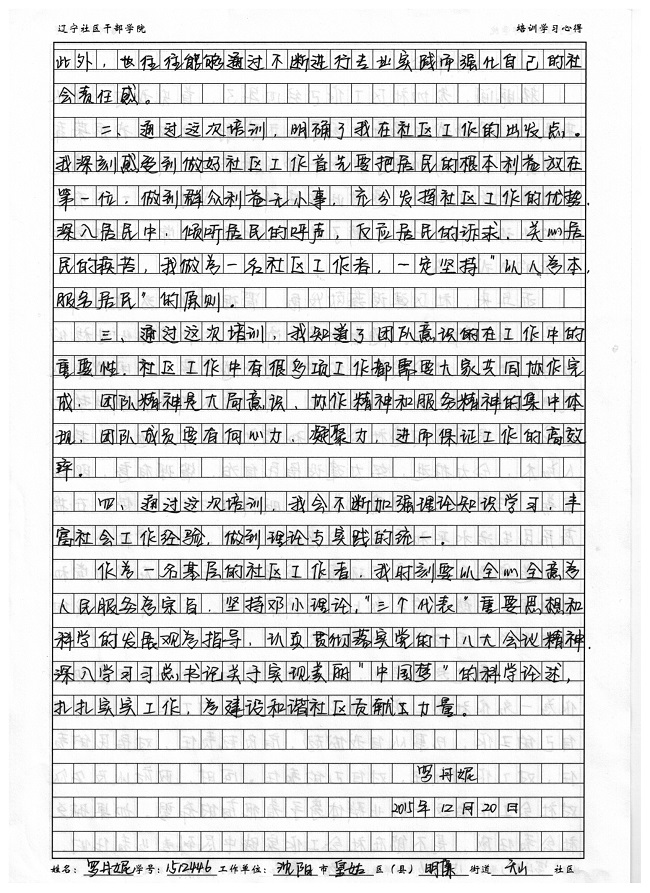 辽宁社区干部学院 培训学习心得
此外，也往往能够通过不断进行专业实践而强化自己的社
会责任感。
二、通过这次培训，明确了我在社区工作的出发点。
我深刻感受到做好社区工作首先要把居民的根本利益放在
第一位，做到群众利益无小事，充分发挥社区工作的优势，
深入居民中，倾听居民的呼声，反应居民的诉求，关心居
民的疾苦，我做为一名社区工作者，一定坚持“以人为本，
服务居民”的原则。
三、通过这次培训，我知道了团队意识的在工作中的
重要性。社区工作中有很多项工作都需要大家共同协作完
成，团队精神是大局意识、协作精神和服务精神的集中体
现，团队成员要有向心力、凝聚力，进而保证工作的高效
率。
四、通过这次培训，我会不断加强理论知识学习，丰
富社会工作经验，做到理论与实践的统一。
作为一名基层的社区工作者，我时刻要以全心全意为
人民服务为宗旨，坚持邓小理论，“三个代表”重要思想和
科学的发展观为指导，认真贯彻落实党的十八大会议精神，
深入学习习总书记关于实现美丽“中国梦”的科学论述，
扎扎实实工作，为建设和谐社区贡献工力量。
罗丹妮
2015年12月20日
姓名：罗丹妮 学号：1512446 工作单位：沈阳市皇姑区（县）明廉街道 社区